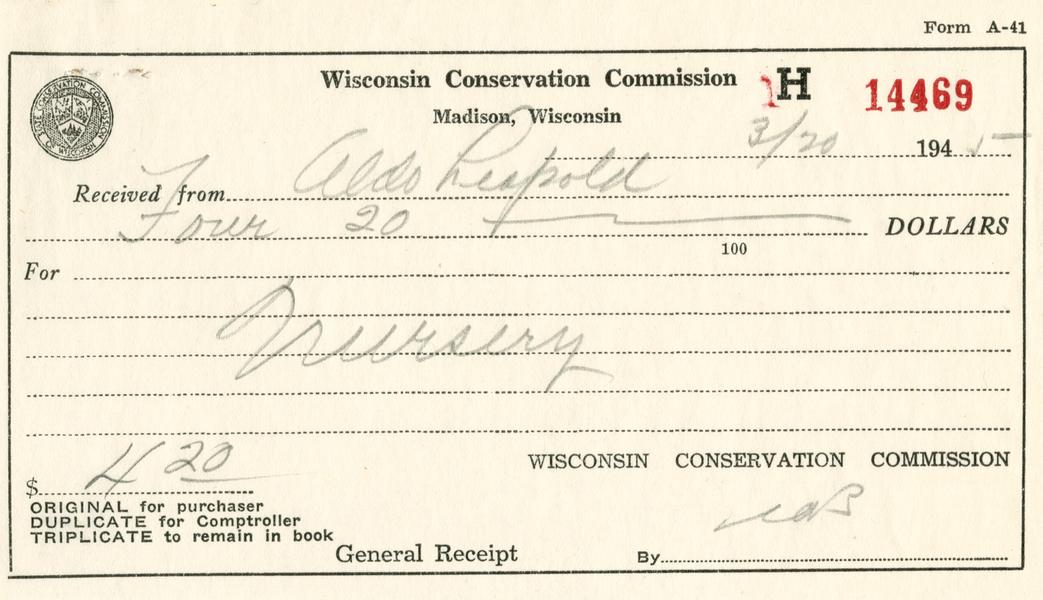 Form A-41
Wisconsin Conservation Commission H 14469
Madison, Wisconsin
STATE CONSERVATION COMMISSION OF WISCONSIN
3/20 1945
Received from Aldo Leopold
Four 20 DOLLARS
100
For
Nursery
$ 4 20
WISCONSIN CONSERVATION COMMISSION
ORIGINAL for purchaser
DUPLICATE for Comptroller
TRIPLICATE to remain in book
General Receipt
By